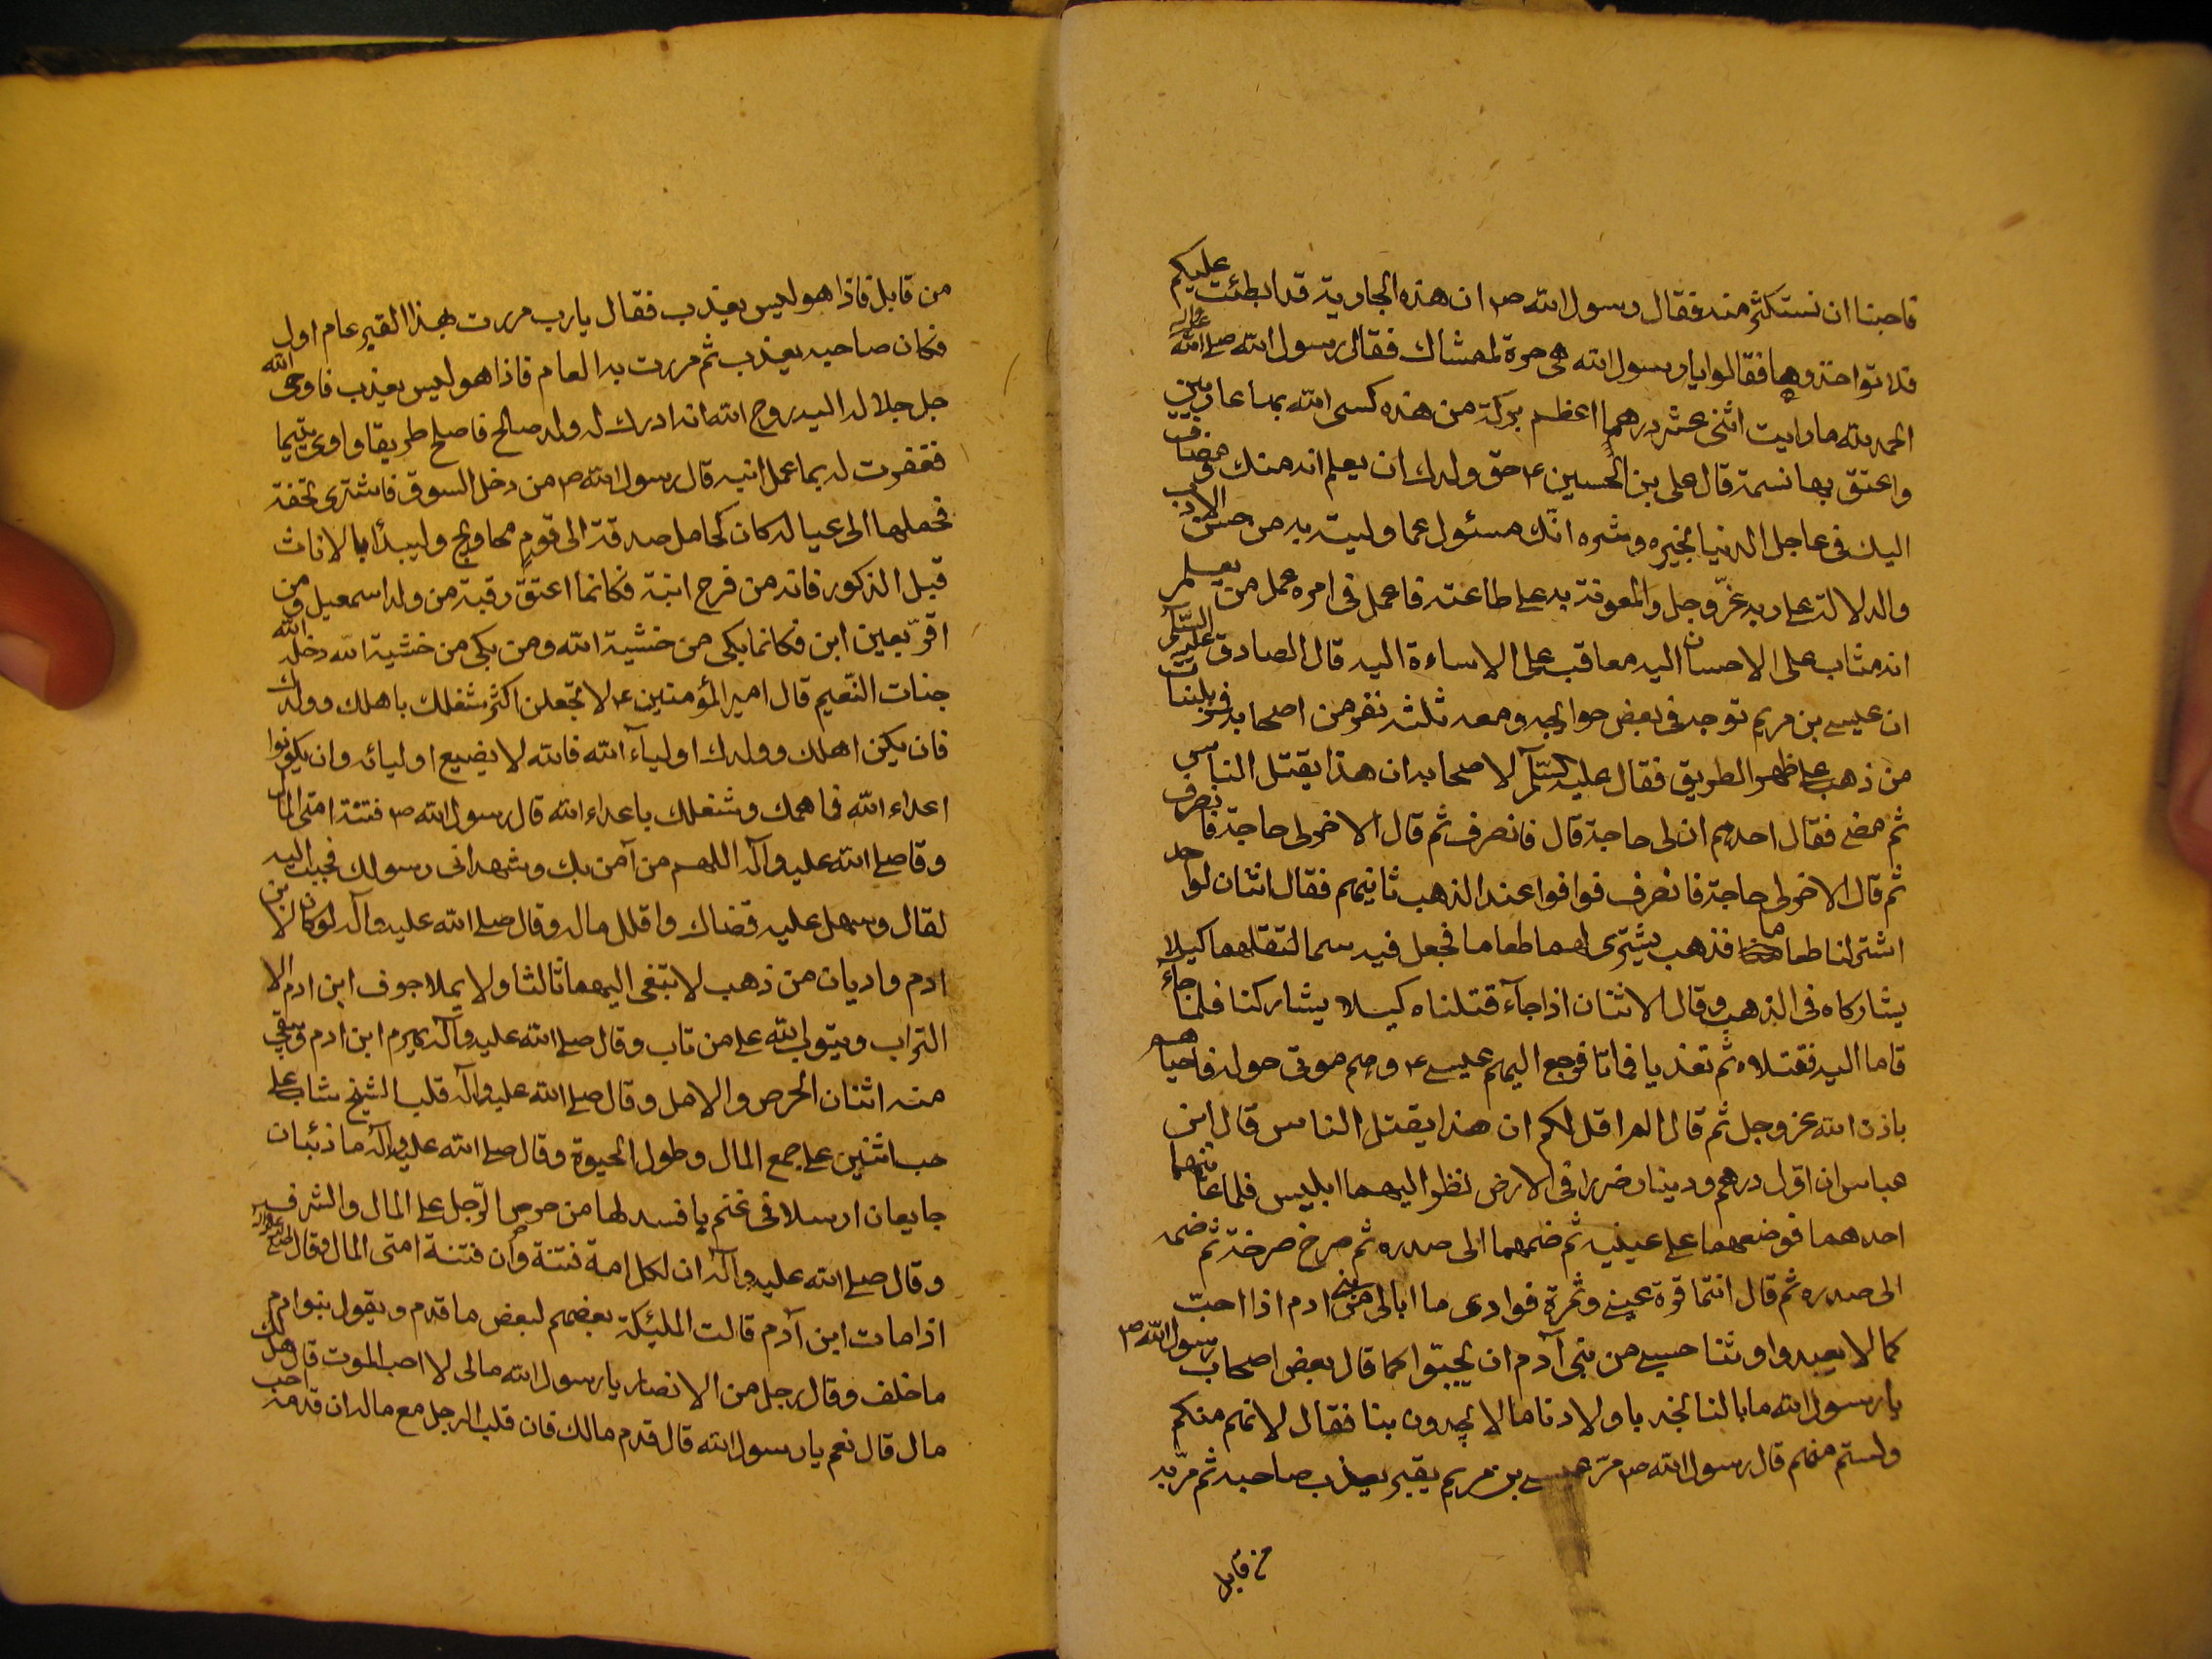 فاحبنا ان نستكثر منه فقال رسول الله ص ان هذه الجارية قد ابطئت عليكم
فلا تواخذوها فقالوا يا رسول الله هى حرة لممشاك فقال رسول الله صلى الله عليه واله
الحمد لله ما رايت اثنى عشر درهما اعظم بركة من هذه كسى الله بها عاريين
واعتق بها نسمة قال على بن الحسين ع حق ولدك ان يعلم انه منك ومضاف
اليك فى عاجل الدنيا بخيره وشره انّك مسئول عما وليته به من حسن الادب
والدلالة على ربه عزّ وجل والمعونة به على طاعته فاعمل فى امره عمل من يعلم
انه مثاب على الاحسان اليه معاقب على الاساءة اليه قال الصادق عليه السلام
ان عيسى بن مريم توجه فى بعض حوائجه ومعه ثلثة نفر من اصحابه فمر بلبنات
من ذهب على ظهر الطريق فقال عليه السلم لاصحابه ان هذا يقتل الناس
ثم مضى فقال احدهم ان لى حاجة قال فانصرف ثم قال الاخر لى حاجة فانصرف
ثم قال الاخر لى حاجة فانصرف فوافوا عند الذهب ثانيهم فقال اثنان لواحد
اشتر لنا طعاما فذهب يشترى لهما طعاما فجعل فيه سما لتقلهما كيلا
يشاركاه فى الذهب وقال الاثنان اذا جآء قتلناه كيلا يشاركنا فلما جآء
قاما اليه فقتلاه ثم تغذيا فماتا فرجع اليهم عيسى ع وهم موتى حوله فاحياهم
باذن الله عز وجل ثم قال الم اقل لكم ان هذا يقتل الناس قال ابن
عباس ان اوّل درهم ودينار ضربا فى الارض نظر اليهما ابليس فلما عاينهما
اخدهما فوضعهما على عينيه ثم ضمهما الى صدره ثم صرخ صرخة ثم ضمه
الى صدره ثم قال انتما قرة عينى وثمرة فوادى ما ابالى من بنى ادم اذا احبّ
كما لا يعبدوا وثنا حسبى من بنى آدم ان يحبّوا كما قال بعض اصحاب رسول الله ص
يا رسول الله ما بالنا نجد باولادنا ما لا يجدون بنا فقال لانهم منكم
ولستم منهم قال رسول الله ص مرّ عيسى بن مريم بقبر يعذب صاحبه ثم مرّ به
من قابل
من قابل فاذا هو ليس يعذب فقال يا رب مررت بهذا القبر عام اول
فكان صاحبه يعذب ثم مررت به العام فاذا هو ليس يعذب فاوحى الله
جل جلاله اليه روح الله انه ادرك له ولد صالح فاصلح طريقا واوى يتيما
فغفرت له بما عمل ابنه قال رسول الله ص من دخل السوق فاشترى تحفة
فحملها الى عياله كان كحامل صدقة الى قوم محاويج وليبدأ بالاناث
قبل الذكور فانه من فرح ابنة فكانما اعتق رقبة من ولد اسمعيل ومن
اقرّ بعين ابن فكانما يكى من خشية الله ومن بكى من خشية الله دخله الله
جنات النّعيم قال امير المؤمنين ع لا تجعلن اكثر شغلك باهلك وولدك
فان يكن اهلك وولدك اوليآء الله فالله لا يضيع اوليائه وان يكونوا
اعداء الله فما همك وشغلك باعداء الله قال رسول الله ص فتنة امتى المال
وقا صلى الله عليه واله اللهم من آمن بك وشهد انى رسولك فحبب اليه
لقال وسهل عليه قضاك واقلل ماله وقال صلى الله عليه واله لو كان لابن
ادم واديان من ذهب لا بتغى اليهما ثالثا ولا يملا جوف ابن ادم الا
التراب ويتوب الله على من تاب وقال صلى الله عليه واله يهرم ابن ادم وتبقى
منه اثنان الحرص والامل وقال صلى الله عليه واله قلب الشيخ شاب على
حب اثنين على جمع المال وطول الحيوة وقال صلى الله عليه واله ما ذئبان
جايعان ارسلا فى غنم بافسد لها من حرص الرّجل على المال والشرف
وقال صلى الله عليه واله ان لكل امة فتنة وان فتنة امتى المال وقال صلى الله عليه واله
اذا مات ابن آدم قالت المليئكة بعضهم لبعض ما قدم ويقول بنوا ادم
ما خلف وقال رجل من الانصار يا رسول الله مالى لا احب الموت قال هل لك
مال قال نعم يا رسول الله قال قدم مالك فان قلب الرجل مع ماله ان قدمه احب